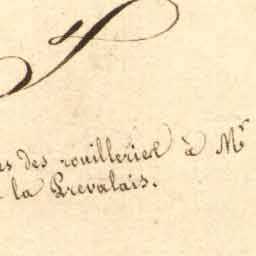 es des rouilleries à Mr
la Prevalais.